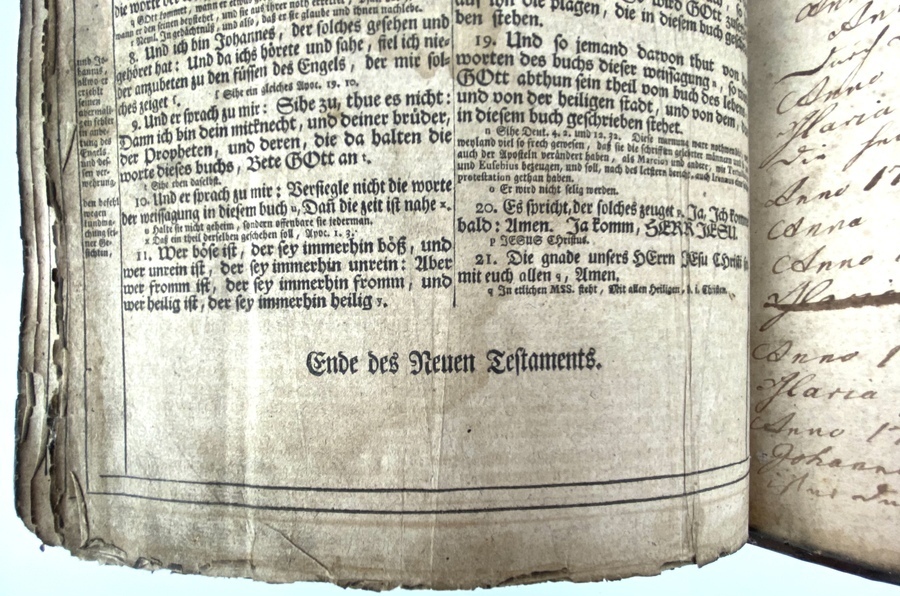 die worte der
q GOtt kommt, wann er etwas
wann er den seinen beystehet, und sie aus ihrer noth errettet,
r Neml. in gedächtnüs, und also, daß er sie glaube und ihnen nachlebe.
8. Und ich bin Johannes, der solches gesehen und
gehöret hat: Und da ichs hörete und sahe, fiel ich nie-
der anzubeten zu den füssen des Engels, der mir sol-
ches zeiget
Sihe ein gleiches Apoc. 19. 10.
9. Und er sprach zu mir: Sihe zu, thue es nicht:
Dann ich bin dein mitknecht, und deiner brüder,
der Propheten, und deren, die da halten die
worte dieses buchs, Bete GOtt an t.
t Sihe eben daselbst.
10. Und er sprach zu mir: Versiegle nicht die worte
der weissagung in diesem buch u, Dañ die zeit ist nahe x.
u Halte sie nicht geheim, sondern offenbare sie jederman.
x Daß ein theil derselben geschehen soll, Apoc. 1. 3.
11. Wer böse ist, der sey immerhin böß, und
wer unrein ist, der sey immerhin unrein: Aber
wer fromm ist, der sey immerhin fromm, und
wer heilig ist, der sey immerhin heilig y.
auf ihn die plagen, die in diesem buch
ben stehen.
19. Und so jemand darvon thut von
worten des buchs dieser weissagung, so
GOtt abthun sein theil vom buch des lebens
und von der heiligen stadt, und von dem,
in diesem buch geschrieben stehet.
n Sihe Deut. 4. 2. und 12. 32. Diese warnung ware nothwendig
weyland viel so frech gewesen, daß sie die schrifften
auch der Aposteln verändert haben, als Marcion und andere, wie
und Eusebius bezeugen, und soll, nach des letztern bericht, auch Irenäus
protestation gethan haben.
o Er wird nicht selig werden.
20. Es spricht, der solches zeuget p. Ja, Ich komme
bald: Amen. Ja komm, HERR JESU.
p JESUS Christus.
21. Die gnade unsers HErrn JEsu CHristi
mit euch allen q, Amen.
q In etlichen MSS. steht, Mit allen Heiligen, d. i. Christen.
Ende des Neuen Testaments.
Anno
Maria
Anno 17
Anna
Anno
Maria
Anno 1
Maria
Anno 17
Johann